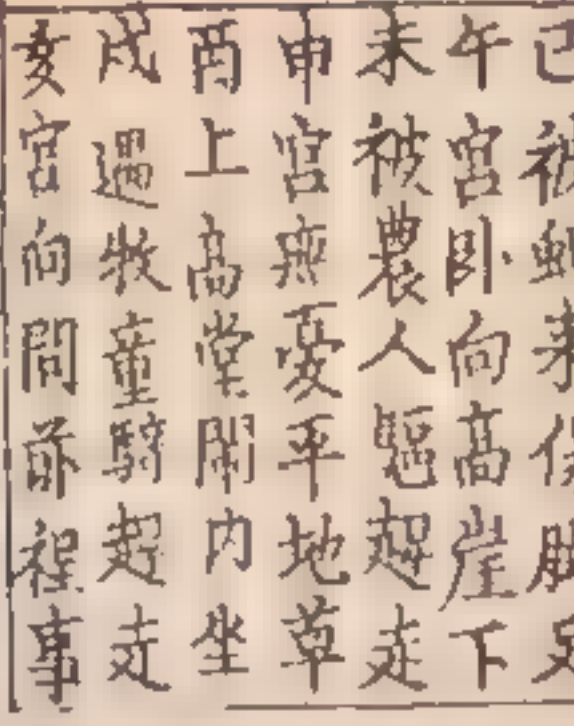 己被
午宮卧向高崖下
未被農人驅趕走
申宮無憂平地草
酉上高堂閒内坐
戌遇牧童騎趕走
亥宮向問前程事